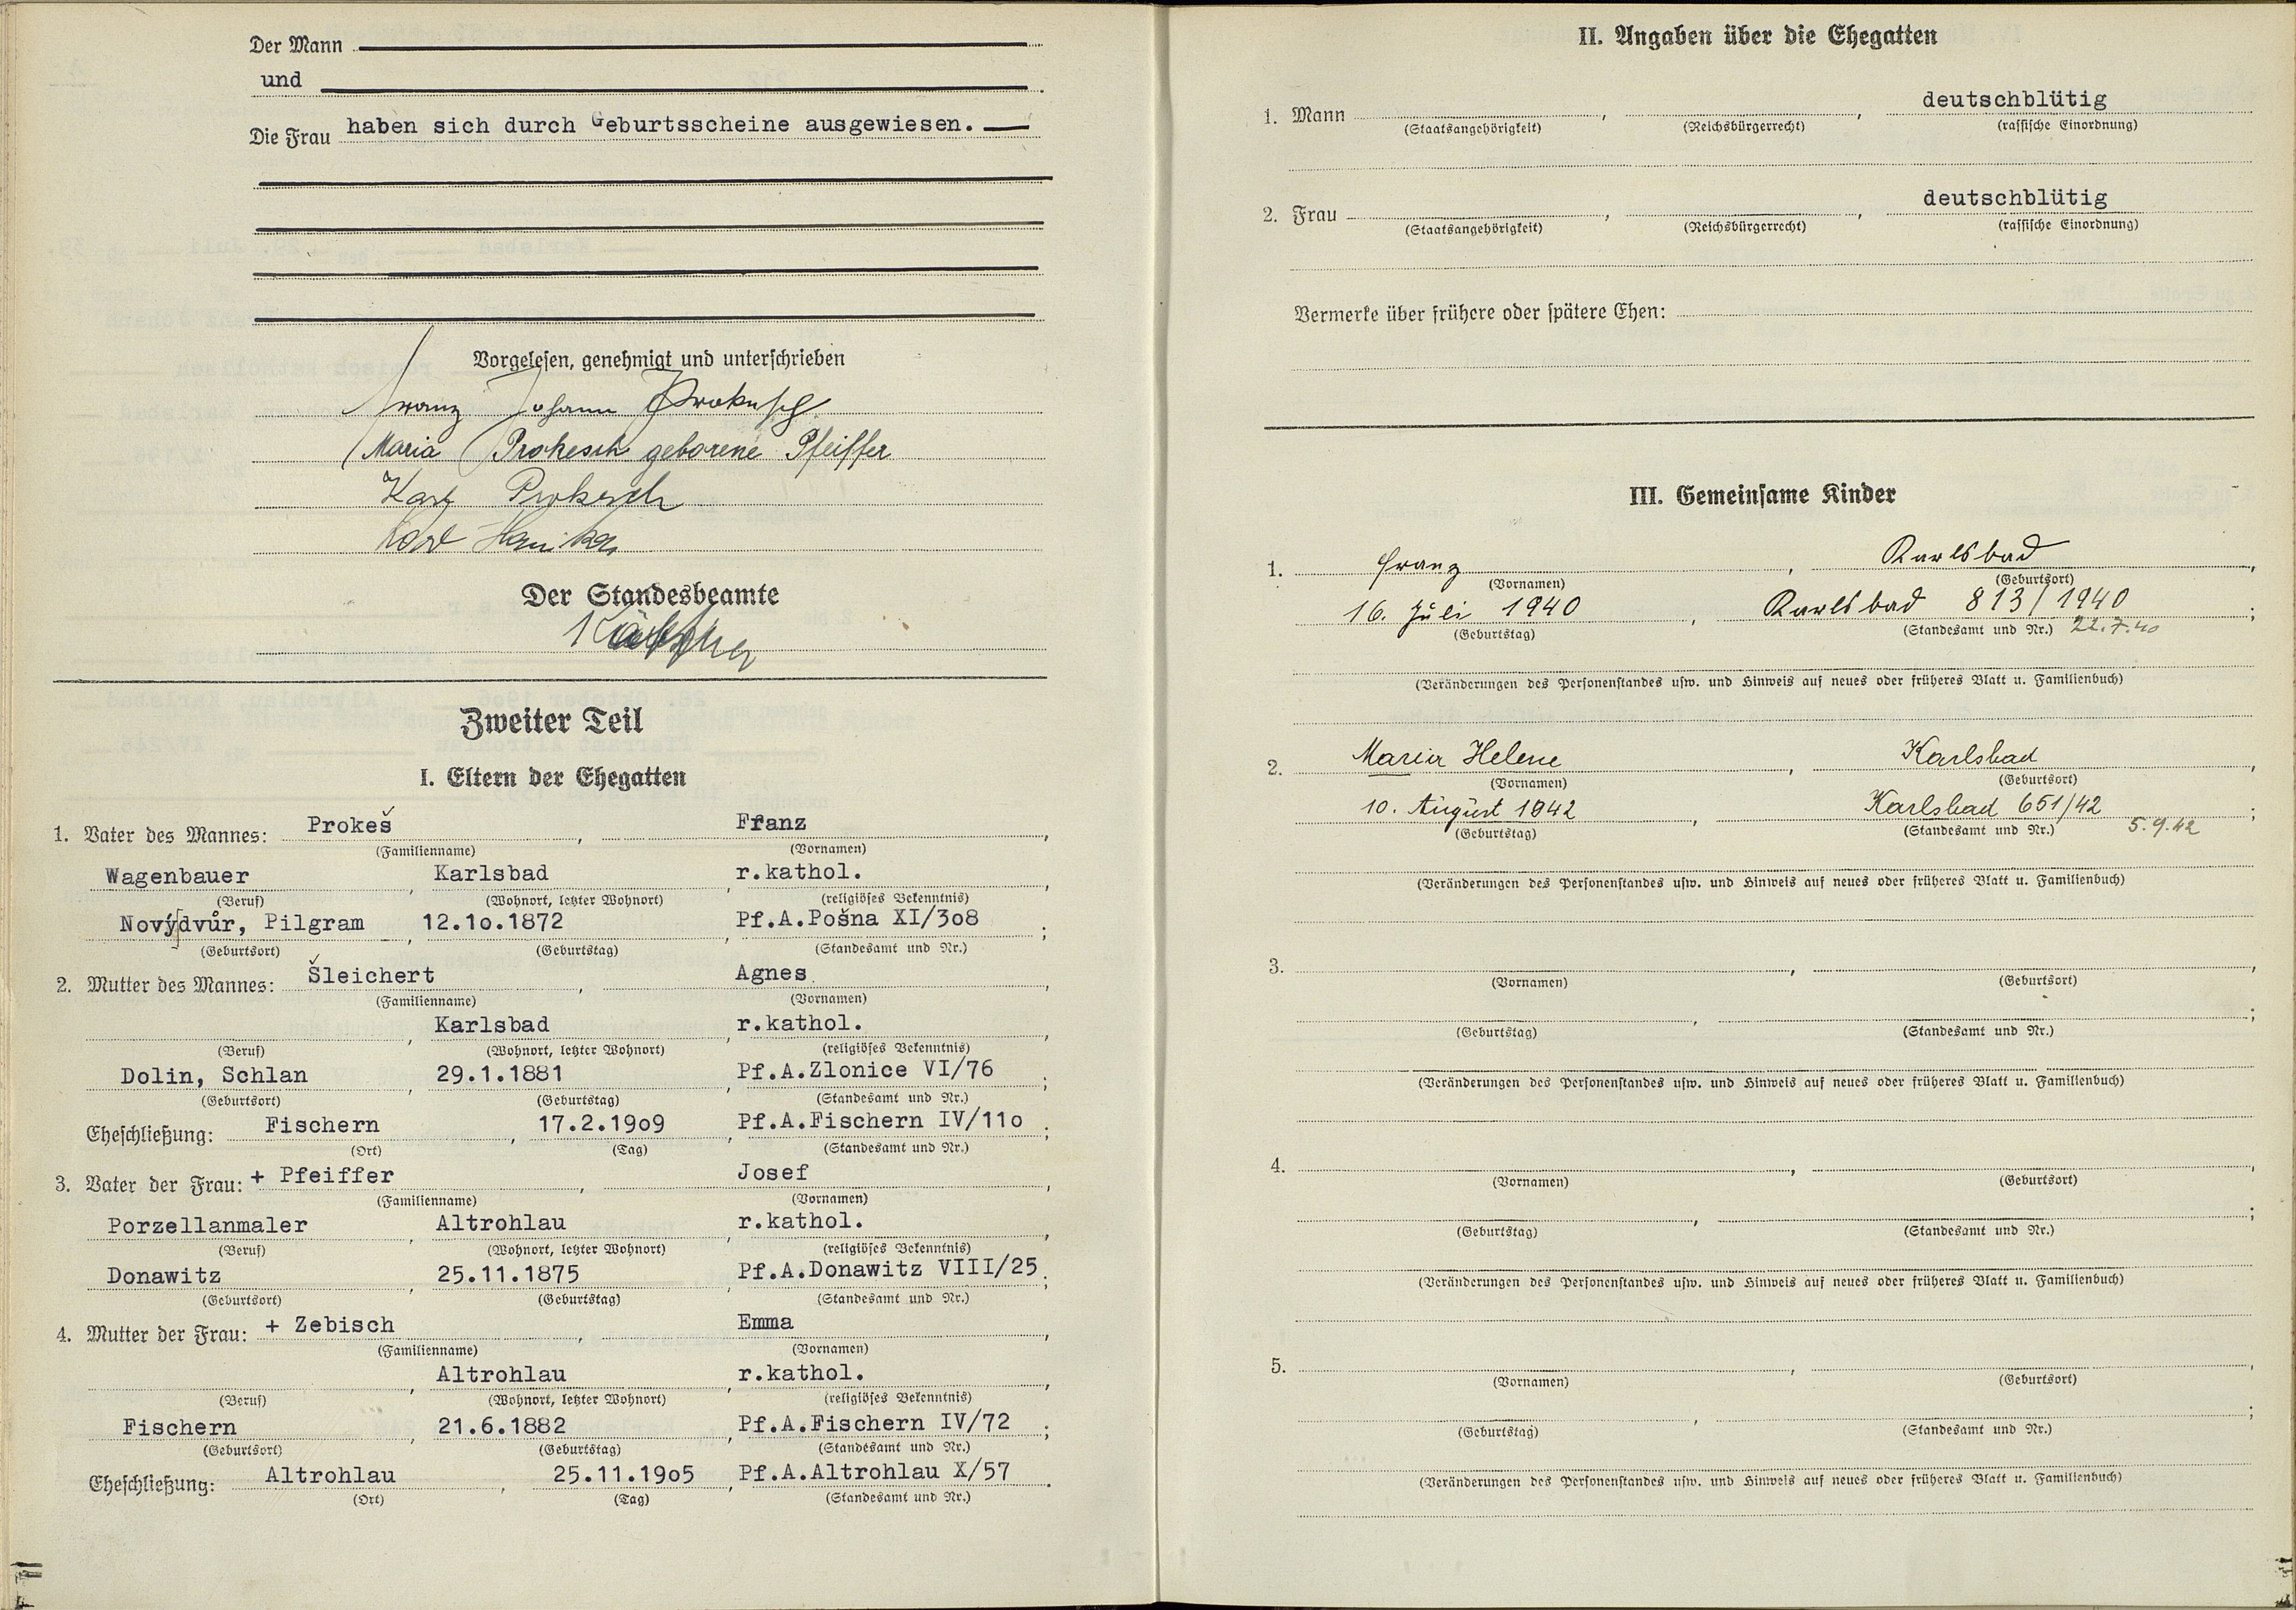 Der Mann
und
Die Frau haben sich durch Geburtsscheine ausgewiesen.
Vorgelesen, genehmigt und unterschrieben
Franz Johann Prokesch
Maria Prokesch geborene Pfeiffer
Karl Prokesch
Der Standesbeamte
Zweiter Teil
I. Eltern der Ehegatten
1. Vater des Mannes: Prokeš, Franz,
(Familienname) (Vornamen)
Wagenbauer, Karlsbad, r.kathol.,
(Beruf) (Wohnort, letzter Wohnort) (religiöses Bekenntnis)
Nový dvůr, Pilgram, 12.10.1872, Pf.A.Pošna XI/308;
(Geburtsort) (Geburtstag) (Standesamt und Nr.)
2. Mutter des Mannes: Šleichert, Agnes,
(Familienname) (Vornamen)
, Karlsbad, r.kathol.,
(Beruf) (Wohnort, letzter Wohnort) (religiöses Bekenntnis)
Dolin, Schlan, 29.1.1881, Pf.A.Zlonice VI/76;
(Geburtsort) (Geburtstag) (Standesamt und Nr.)
Eheschließung: Fischern, 17.2.1909, Pf.A.Fischern IV/110;
(Ort) (Tag) (Standesamt und Nr.)
3. Vater der Frau: + Pfeiffer, Josef,
(Familienname) (Vornamen)
Porzellanmaler, Altrohlau, r.kathol.,
(Beruf) (Wohnort, letzter Wohnort) (religiöses Bekenntnis)
Donawitz, 25.11.1875, Pf.A.Donawitz VIII/25;
(Geburtsort) (Geburtstag) (Standesamt und Nr.)
4. Mutter der Frau: + Zebisch, Emma,
(Familienname) (Vornamen)
, Altrohlau, r.kathol.,
(Beruf) (Wohnort, letzter Wohnort) (religiöses Bekenntnis)
Fischern, 21.6.1882, Pf.A.Fischern IV/72;
(Geburtsort) (Geburtstag) (Standesamt und Nr.)
Eheschließung: Altrohlau, 25.11.1905, Pf.A.Altrohlau X/57.
(Ort) (Tag) (Standesamt und Nr.)
II. Angaben über die Ehegatten
1. Mann , , deutschblütig
(Staatsangehörigkeit) (Reichsbürgerrecht) (rassische Einordnung)
2. Frau , , deutschblütig
(Staatsangehörigkeit) (Reichsbürgerrecht) (rassische Einordnung)
Vermerke über frühere oder spätere Ehen:
III. Gemeinsame Kinder
1. Franz, Karlsbad,
(Vornamen) (Geburtsort)
16. Juli 1940, Karlsbad 813/1940;
(Geburtstag) (Standesamt und Nr.) 22.7.40
(Veränderungen des Personenstandes usw. und Hinweis auf neues oder früheres Blatt u. Familienbuch)
2. Maria Helene, Karlsbad,
(Vornamen) (Geburtsort)
10. August 1942, Karlsbad 651/42;
(Geburtstag) (Standesamt und Nr.) 5.9.42
(Veränderungen des Personenstandes usw. und Hinweis auf neues oder früheres Blatt u. Familienbuch)
3. , ,
(Vornamen) (Geburtsort)
, ;
(Geburtstag) (Standesamt und Nr.)
(Veränderungen des Personenstandes usw. und Hinweis auf neues oder früheres Blatt u. Familienbuch)
4. , ,
(Vornamen) (Geburtsort)
, ;
(Geburtstag) (Standesamt und Nr.)
(Veränderungen des Personenstandes usw. und Hinweis auf neues oder früheres Blatt u. Familienbuch)
5. , ,
(Vornamen) (Geburtsort)
, ;
(Geburtstag) (Standesamt und Nr.)
(Veränderungen des Personenstandes usw. und Hinweis auf neues oder früheres Blatt u. Familienbuch)